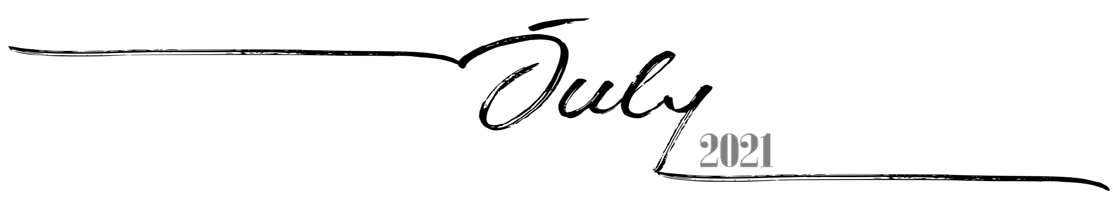 July
2021